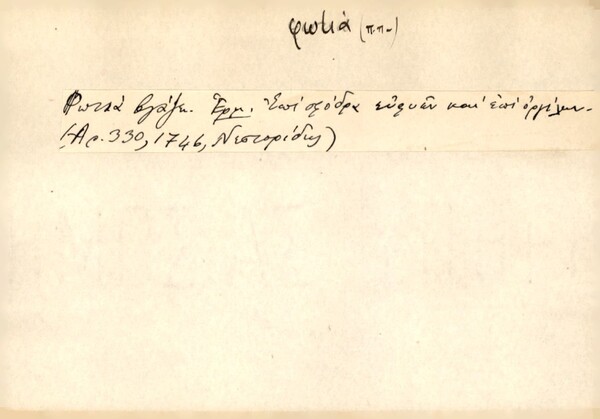 φωτιά (π.π.)
Φωτιά βγάζει. Ἑρμ. Ἐπί σφόδρα εὐφυῶν καί ἐπί ὀργίλων.
(Ἀρ. 330, 1746, Νεστορίδης)